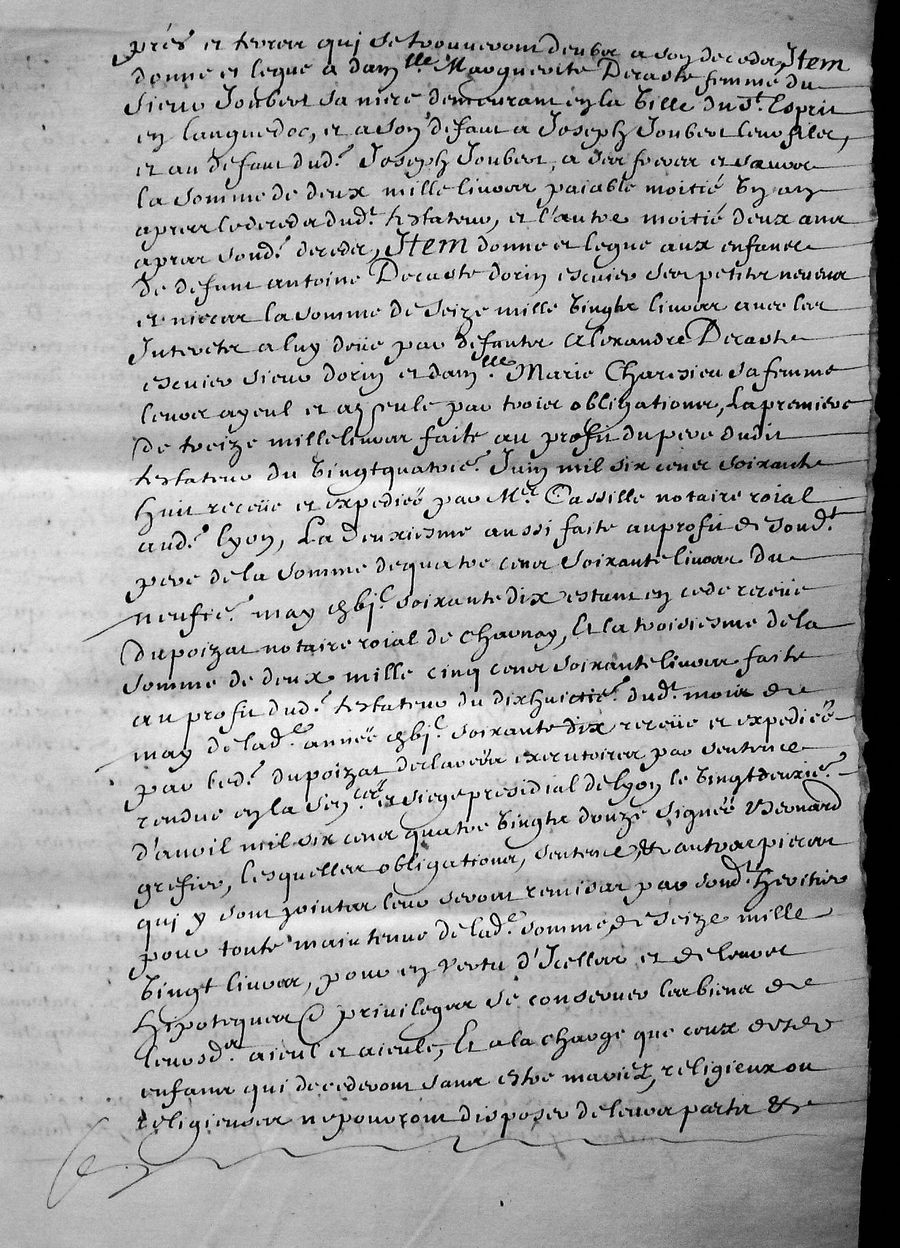 prés et terres qui se trouveront deubes a son decedes, Item
donne et legue a dam.lle Marguerite Decaste femme du
Sieur Joubert sa niece demeurant en la Ville du St. Esprit
en languedoc, et a son defaut a Joseph Joubert leur filez,
et au defaut dud.t Joseph Joubert, a ses freres et sœurs
la somme de deux mille livres paiable moitié un an
apres le decedz dud.t testateur, et l'autre moitié deux ans
apres sond.t decedz, Item donne et legue aux enfans
de defunt antoine Decaste dorin escuier ses petits neveux
et nieces la somme de Seize mille Vingts livres avec les
Interetz a luy deüe par defuntz Alexandre Decaste
escuier sieur dorin et dam.lle Marie Charesieu sa femme
leurs ayeul et ayeule par trois obligations, La premiere
de treize mille livres faite au profit du pere dudit
testateur du Vingtquatrie.e Juin mil six cens soixante
huit receüe et expediée par M.e Cassille notaire roial
aud.t lyon, La deuxiesme aussi faite au profit de sond.t
pere de la somme de quatre cens soixante livres du
neufie.e may gbj.c soixante dix estant en cede receüe
Dupoizat notaire roial de Charnay, Et la troisiesme de la
somme de deux mille cinq cens soixante livres faite
au profit dud.t testateur du dixhuictie.e dud.t mois de
may de lad.e année gbj.c soixante dix receüe et expediée
par led.t dupoizat declarées executoires par sentence
rendue en la Sen.cée et siege presidial de Lyon le Vingtdeuxie.e
d'avril mil six cens quatre Vingts douze signée Bernard
grefier, lesquelles obligations, sentence, & autres pieces
qui y sont jointes leur seront remises par sond.t heritier
pour toute maintenue de lad.e somme de Seize mille
Vingt livres, pour en Vertu d'Icelles et de leurs
hipoteques & privileges se conserver les biens de
leursd.s aieul et aieule, Et a la charge que ceux desd.s
enfans qui decederont sans estre mariez, religieux ou
religieuses ne pourront disposer de leurs parts &